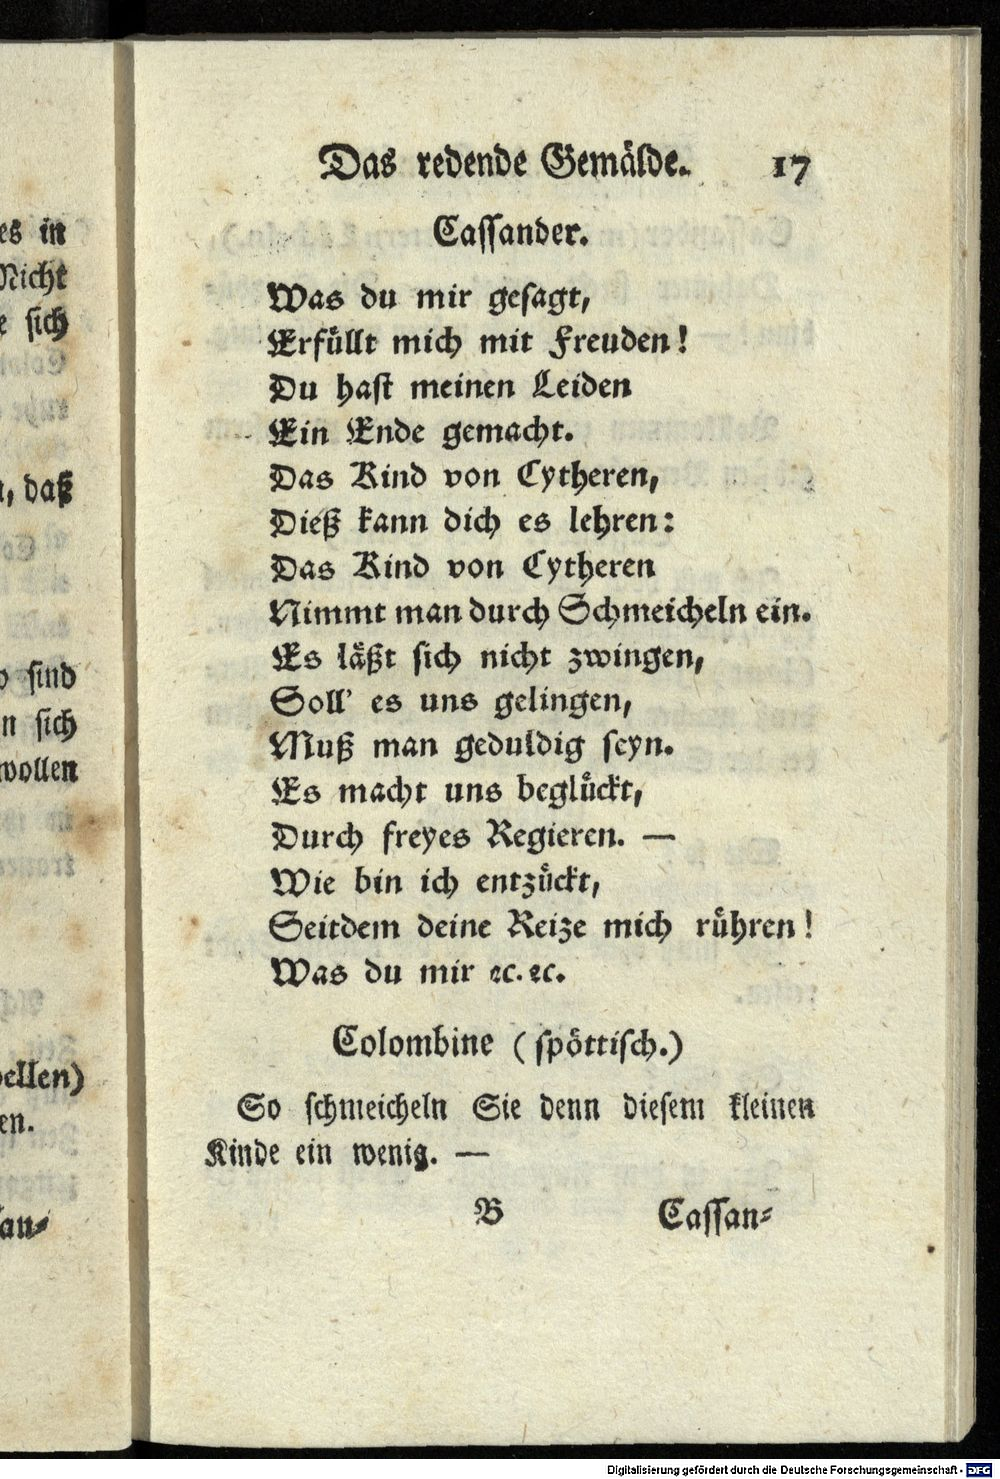 es in
Nicht
e sich
n, daß
o sind
n sich
wollen
en.
Das redende Gemälde. 17
Cassander.
Was du mir gesagt,
Erfüllt mich mit Freuden!
Du hast meinen Leiden
Ein Ende gemacht.
Das Kind von Cytheren,
Dieß kann dich es lehren:
Das Kind von Cytheren
Nimmt man durch Schmeicheln ein.
Es läßt sich nicht zwingen,
Soll' es uns gelingen,
Muß man geduldig seyn.
Es macht uns beglückt,
Durch freyes Regieren. —
Wie bin ich entzückt,
Seitdem deine Reize mich rühren!
Was du mir ꝛc. ꝛc.
Colombine (spöttisch.)
So schmeicheln Sie denn diesem kleinen
Kinde ein wenig. —
B Cassan-
Digitalisierung gefördert durch die Deutsche Forschungsgemeinschaft - DFG